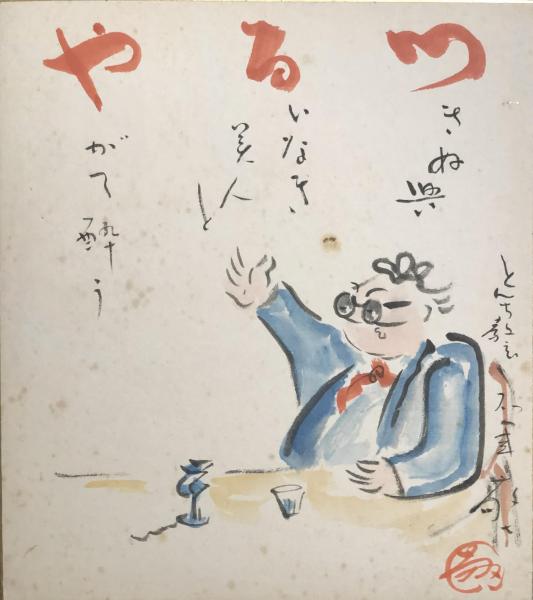 つきぬ興
るいなき
美人と
やがて酔う
とんち教室 石黒敬七